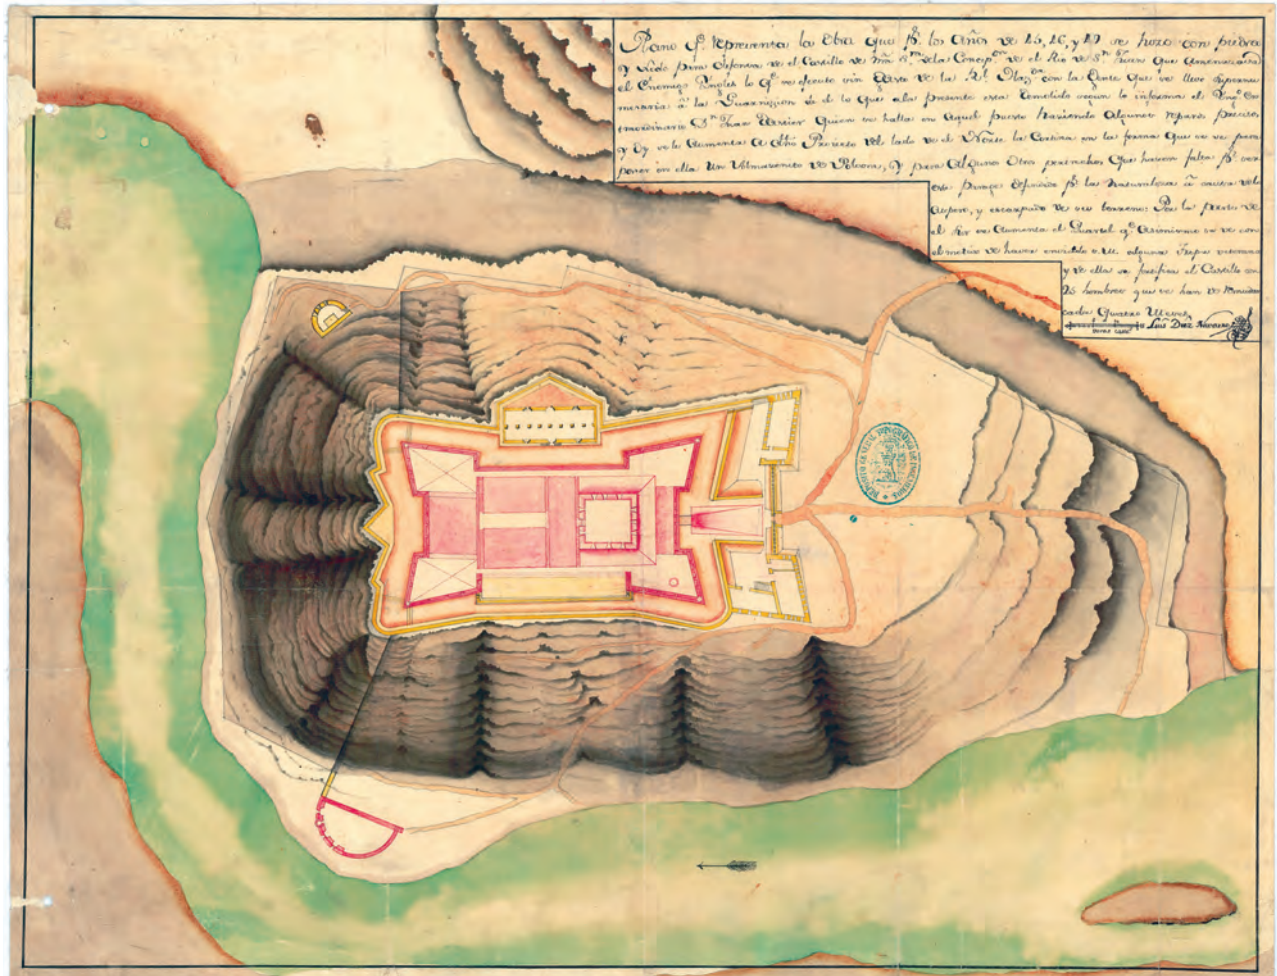 Plano q.e representa la Obra que p.r los Años de 45, 46, y 47 se hozo con piedra
y Lodo para defensa de el Castillo de ntrã S.ra dela Concep.on de el Rio de S.n Juan que amenazava
el Enemigo Yngles lo q.e se ejecuto sin Gasto de la R.l Haz.da con la Gente que se llevo
à la Guarnizion de lo que ala presente esta segun lo informa el Yng.o
D.n Juan Quien se halla en aquel puesto haziendo Algunos reparos precisos
y Oy se le Aumenta a dho Proyecto del lado de el Norte la Cortina en la forma que se ve para
poner en ella Un de Polvora, y para Algunos Otros pertrechos que hazen falta p.r ser
este parage defendido p.r la Naturaleza à causa del
aspero, y escarpado de su terreno: Por la puerta de
el Sur se Aumenta el Quartel q.e Asimismo se ve con
el motivo de haver embiado alli alguna Tropa veterana
y de ella se fortifica el Castillo con
25 hombres que se han de remudar
cada Quatro Meses,
Luis Diez Navarro
DEPOSITO GENERAL TOPOGRAFICO DE INGENIEROS